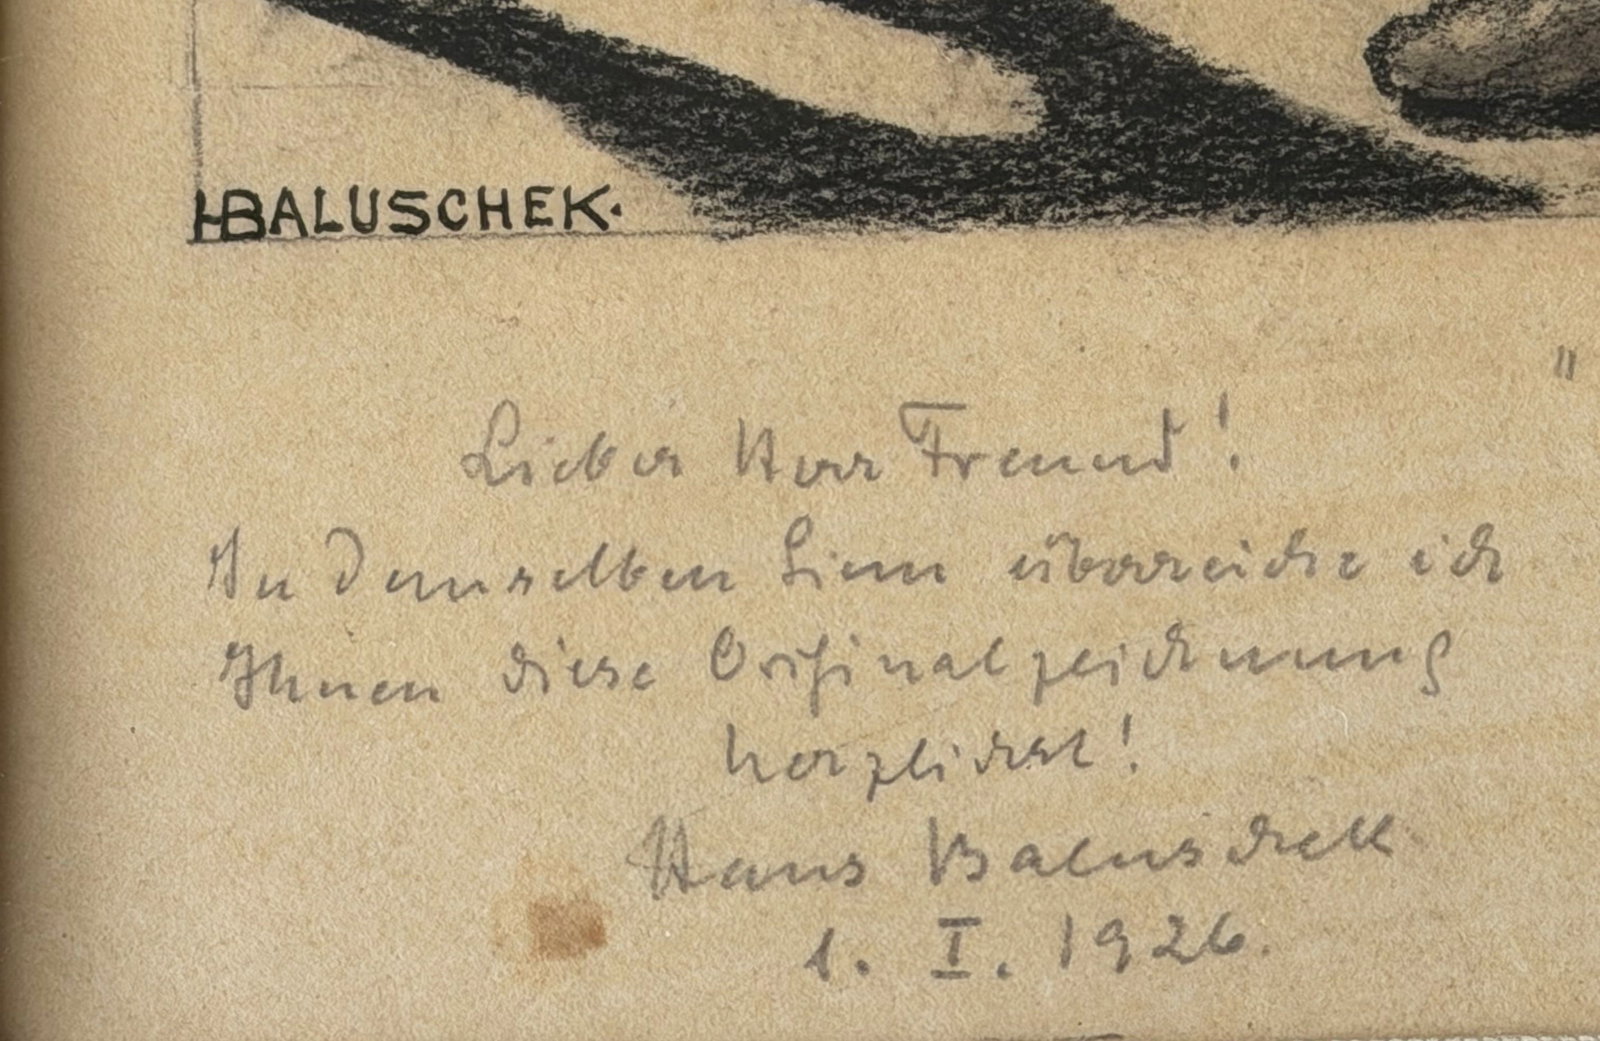 HBALUSCHEK.
"
Lieber Herr Freund!
In demselben Sinn überreiche ich
Ihnen diese Originalzeichnung
herzlichst!
Hans Baluschek
1. I. 1926.